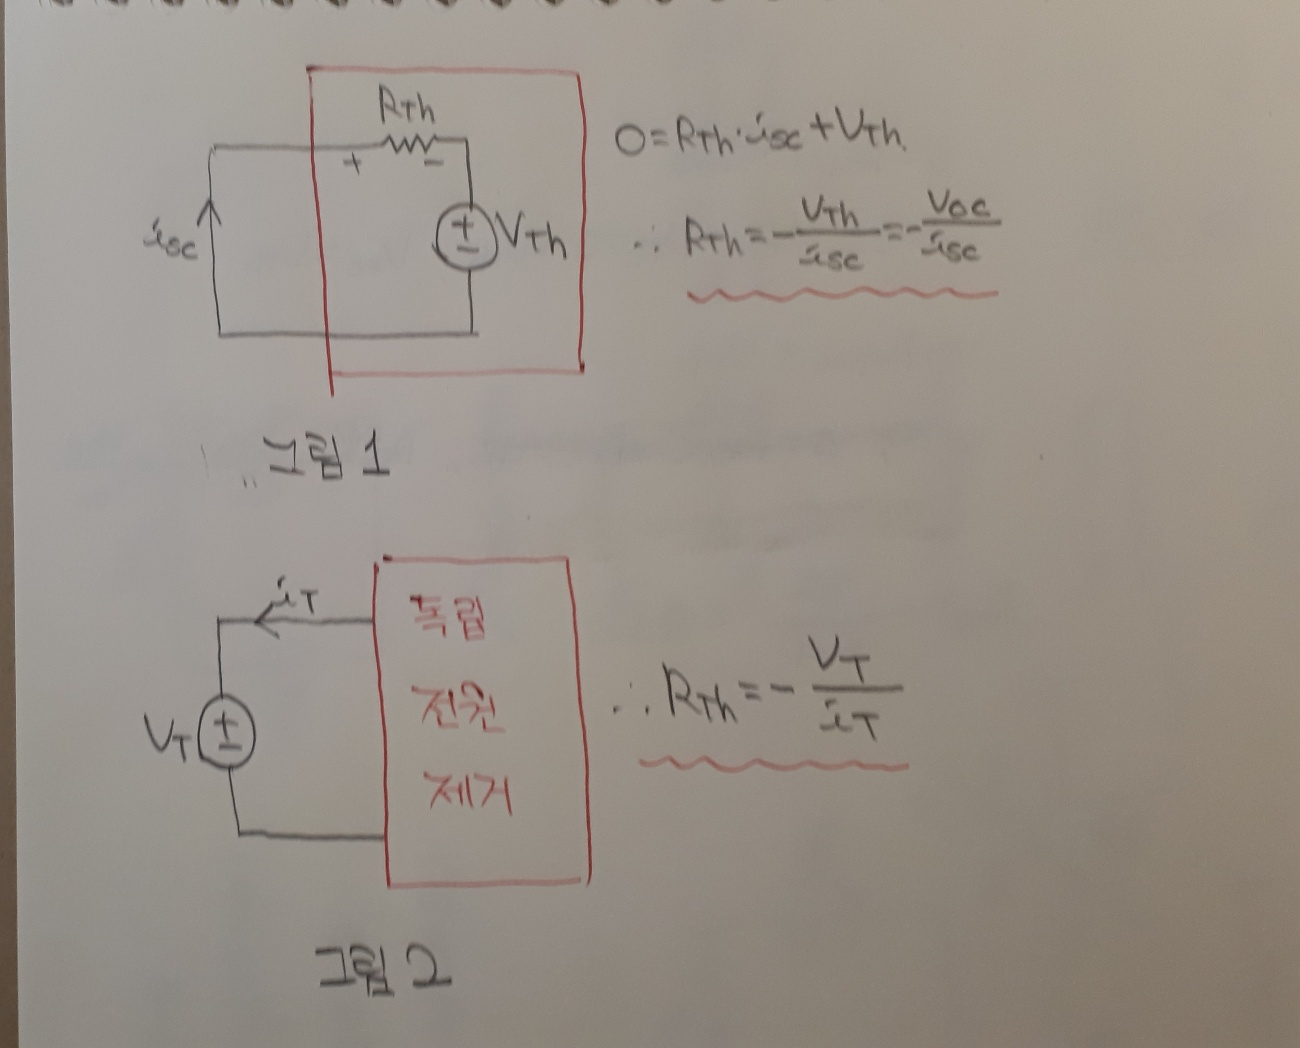 RTh
+ -
isc
+
-
VTh
0=RTh·isc+VTh.
∴ RTh=-VTh/isc=-Voc/isc
그림 1
iT
VT
+
-
독립
전원
제거
∴ RTh=-VT/iT
그림 2